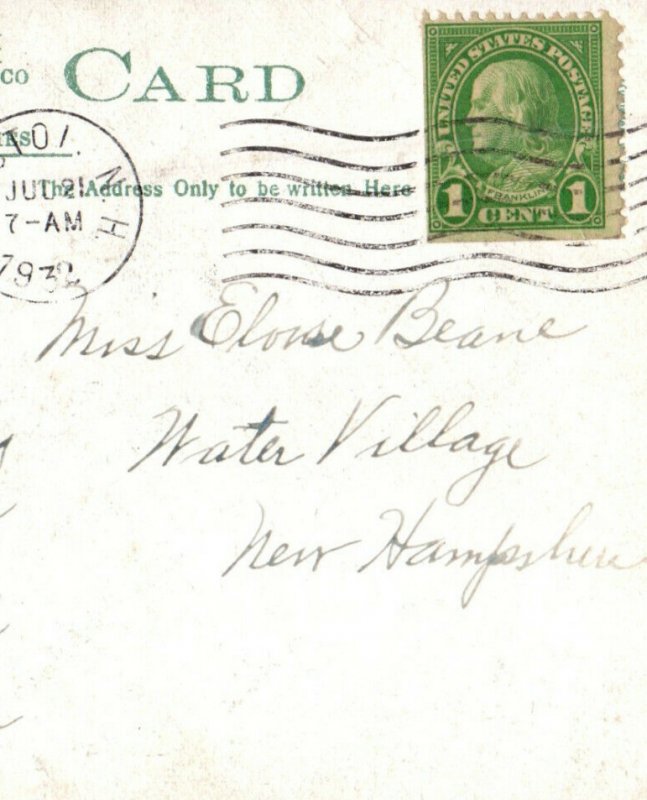 CO
CARD
The Address Only to be written Here
UNITED STATES POSTAGE
FRANKLIN
1 CENT 1
TOL N.H.
JUL 21
7-AM
1932
Miss Eloise Beane
Water Village
New Hampshire